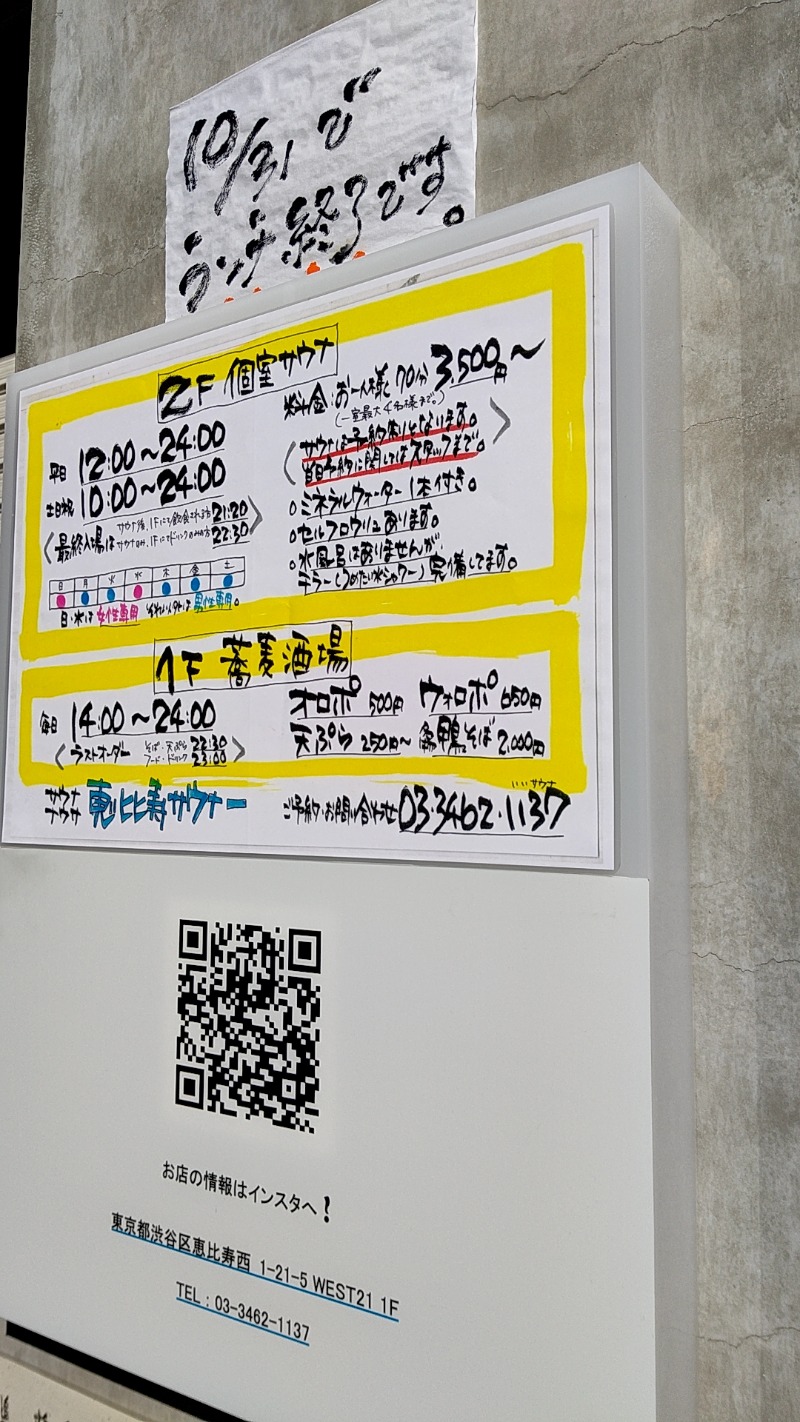 10/31で
ランチ終了です。
2F 個室サウナ
平日 12:00〜24:00
土日祝 10:00〜24:00
〈最終入場は サウナ後、1Fにて飲食される方 21:20
サウナのみ、1Fにてドリンクのみの方 22:30〉
日 月 火 水 木 金 土
日・水は 女性専用 それ以外は 男性専用。
料金:お一人様 70分 3,500円〜
(一室最大4名様まで。)
〈サウナは予約制となります。
当日予約に関してはスタッフまで。〉
○ミネラルウォーター1本付き。
○セルフロウリュあります。
○水風呂はありませんが、
チラー(つめたい水シャワー)完備してます。
1F 蕎麦酒場
毎日 14:00〜24:00
〈ラストオーダー そば・天ぷら 22:30
フード・ドリンク 23:00〉
オロポ 500円 ウォロポ 650円
天ぷら 250円〜 鴨そば 2,000円
サウナ
ナウサ 恵比寿サウナー
いいサウナ
ご予約・お問い合わせ 03・3462・1137
お店の情報はインスタへ!
東京都渋谷区恵比寿西 1-21-5 WEST21 1F
TEL：03-3462-1137